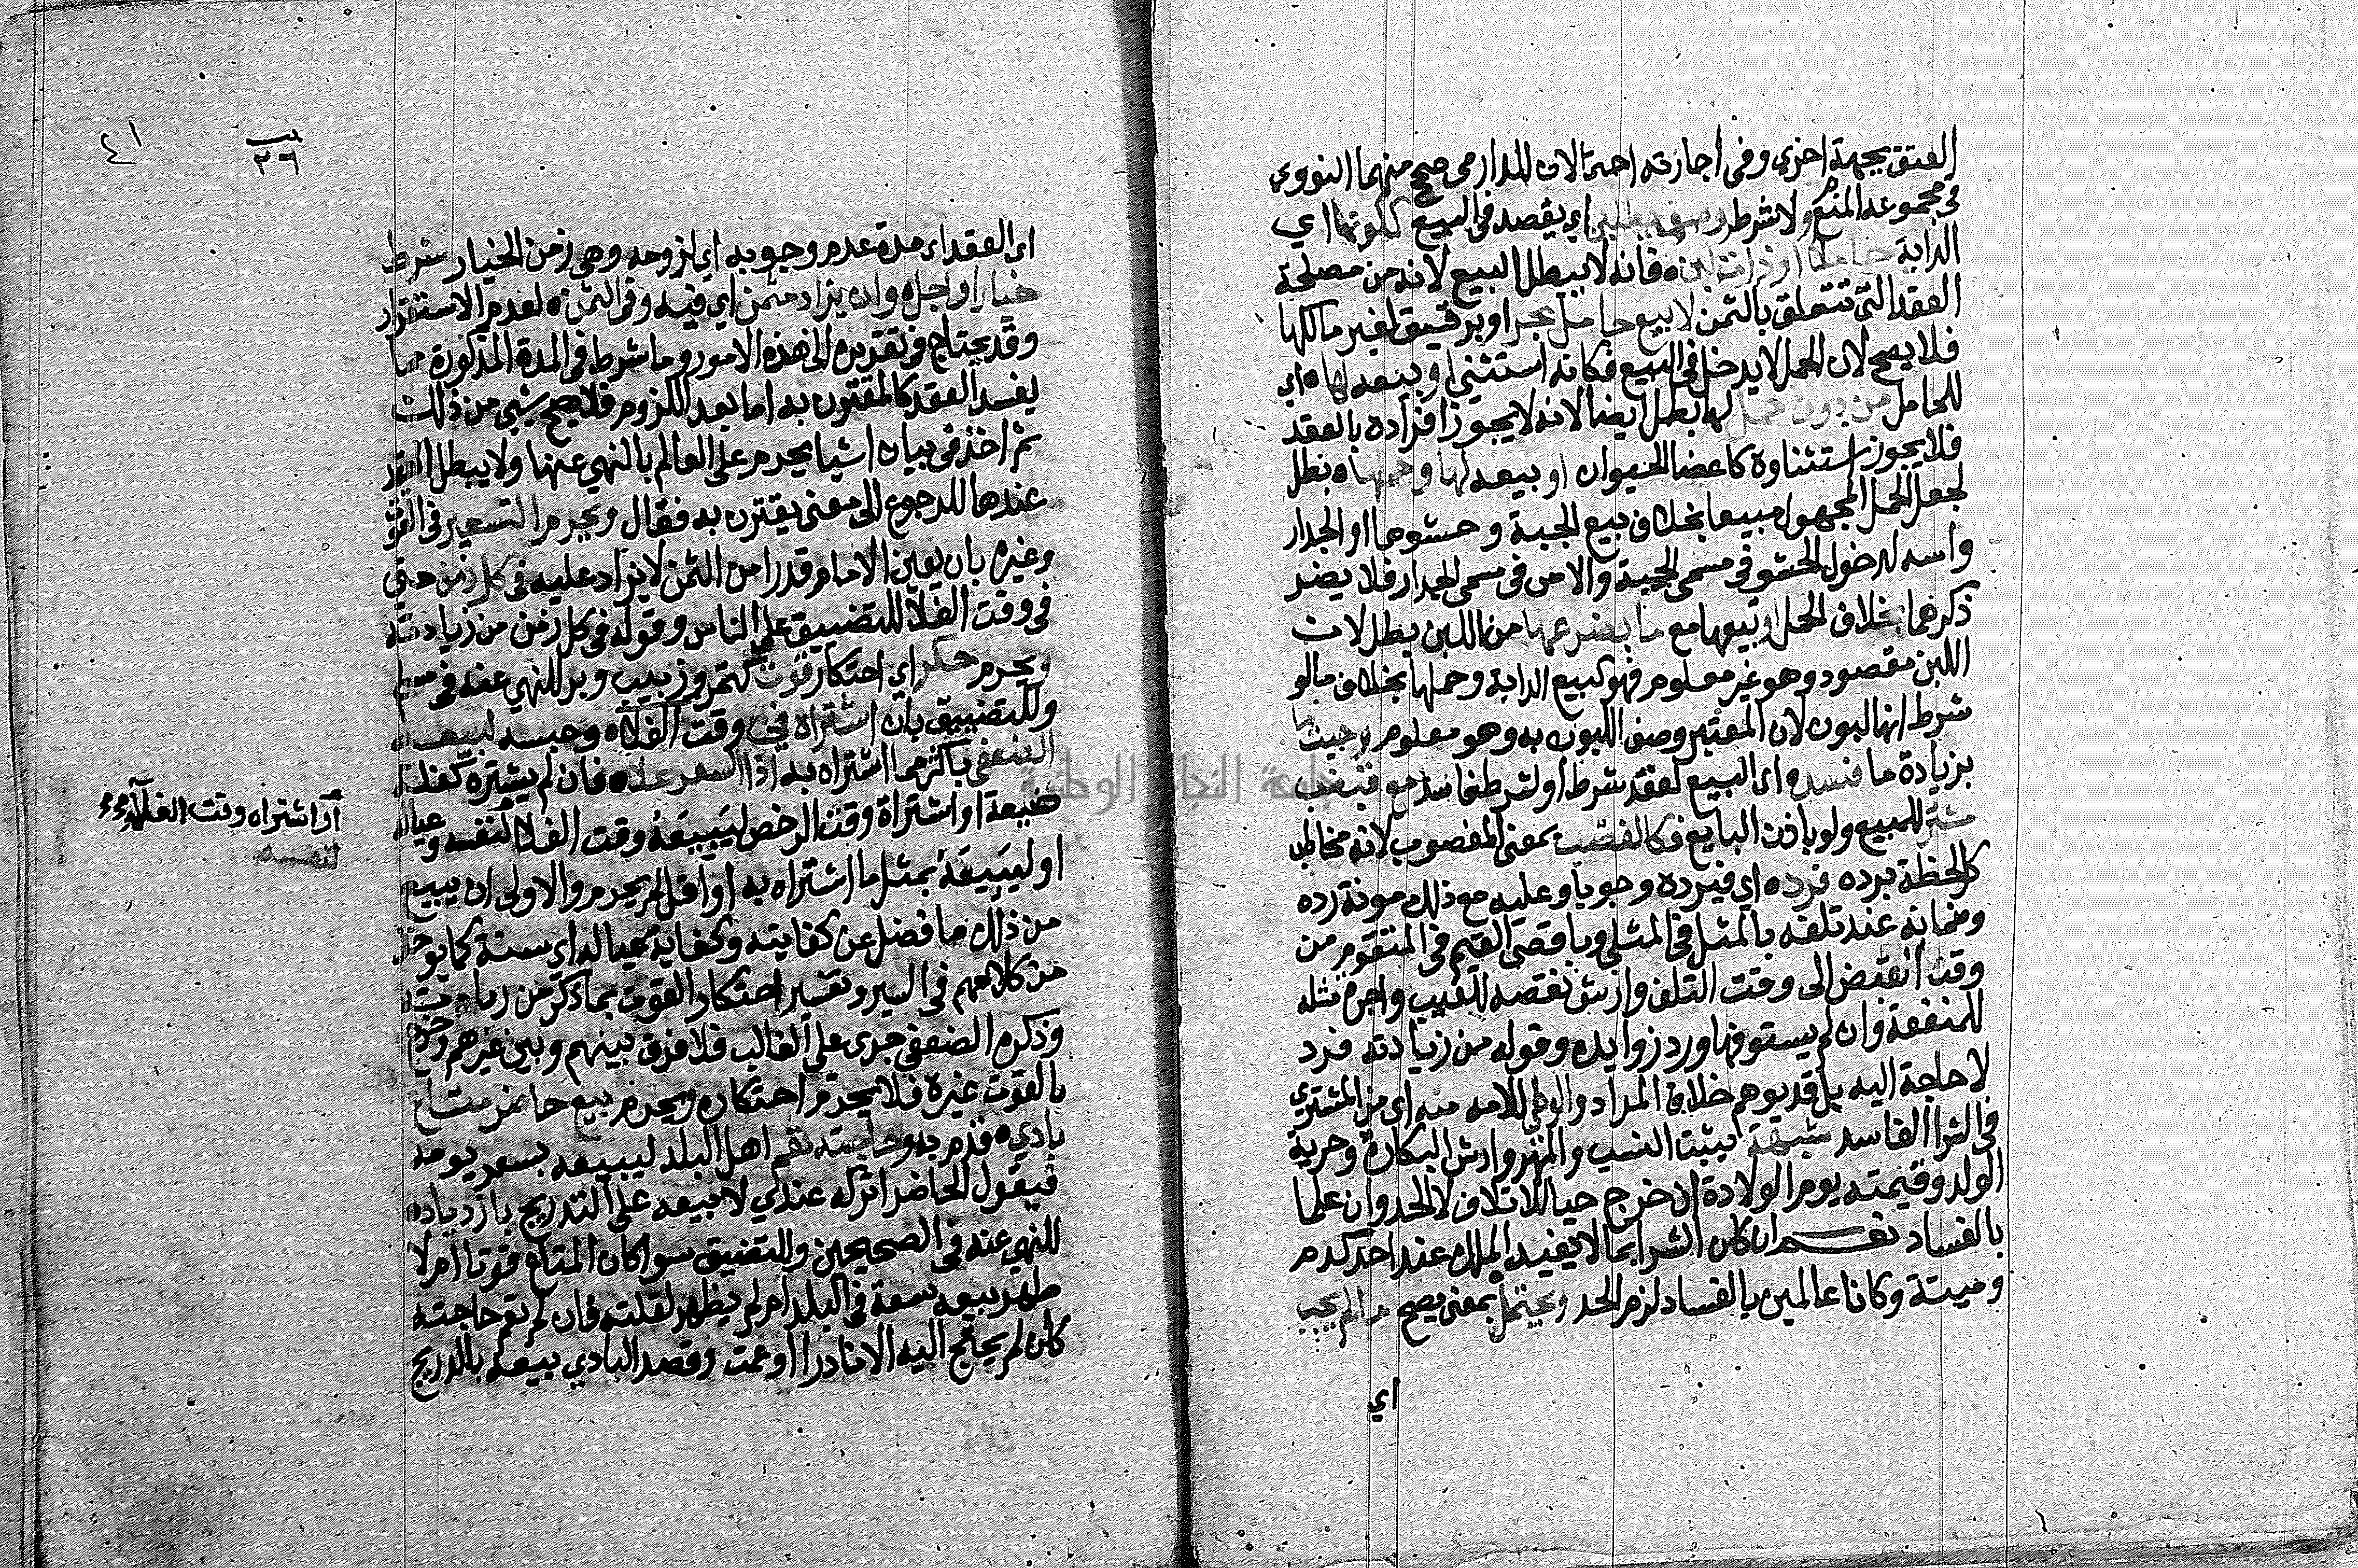 العتق بجهة اخري وفي اجازته احتمالات للدارمي صحح منهما النووي
في مجموعه المنع ولا شرط وصف يقصد اي يقصد في البيع ككونها اي
الدابة حاملا او ذات لبن فانه لا يبطل البيع لانه من مصلحة
العقد التي تتعلق بالثمن لا بيع حامل بحر او برقيق لغير مالكها
فلا يصح لان الحمل لا يدخل في البيع فكانه استثني او بيعه لها اي
للحامل من دون حمل لها بطل ايضا لانه لا يجوز افراده بالعقد
فلا يجوز استثناوه كاعضا الحيوان او بيعه لها وحملها بطل
لجعل الحمل المجهول مبيعا بخلاف بيع الجبة وحشوها او الجدار
واسه لدخول الحشو في مسمى الجبة والاس في مسمى الجدار فلا يضر
ذكرهما بخلاف الحمل او بيعها مع ما بضرعها من اللبن بطل لان
اللبن مقصود وهو غير معلوم فهو كبيع الدابة وحملها بخلاف ما لو
شرط انها لبون لان المعتبر وصف اللبون به وهو معلوم وحيث
بزيادة ما فسد اي البيع لفقد شرط او لشرط فاسد مع قبض
مشتر للمبيع ولو باذن البايع فكالغصب بمعنى المغصوب لانه مخاطب
كل لحظة برده فرده اي فيرده وجوبا وعليه مع ذلك مونة رده
وضمانه عند تلفه بالمثل في المثلي وباقصى القيم في المتقوم من
وقت القبض الى وقت التلف وارش نقصه للعيب واجرة مثله
للمنفعة وان لم يستوفها ورد زوايده وقوله من زيادته فرد
لا حاجة اليه بل قد يوهم خلاف المراد والوطي للامه منه اي من المشتري
في الشرا الفاسد شبهة يثبت النسب والمهر وارش البكارة وحرية
الولد وقيمته يوم الولادة ان خرج حيا للاتلاف لا الحد وان علما
بالفساد نعم ان كان الشرا بما لا يفيد الملك عند احد كدم
وميتة وكانا عالمين بالفساد لزم الحد ويحتمل بمعنى يصح ما لم يجب
اي
٤١
٢٦
اي العقد اي مدة عدم وجوبه اي لزومه وهي زمن الخيار شرط
خيار او اجل وان يزاد مثمن اي فيه وفي الثمن لعدم الاستقرار
وقد يحتاج في تقديره الى هذه الامور وما شرط في المدة المذكورة مما
يفسد العقد كالمقترن به اما بعد اللزوم فلا يصح شيء من ذلك
ثم اخذ في بيان اشيا يحرم على العالم بالنهي عنها ولا يبطل العقد
عندها للرجوع الى معنى يقترن به فقال ويحرم التسعير في القوت
وغيره بان يعين الامام قدرا من الثمن لا يزاد عليه في كل زمن حتى
في وقت الغلا للتضييق على الناس وقوله في كل زمن من زيادته
ويحرم حكر اي احتكار قوت كتمر وزبيب وبر للنهي عنه في مسلم
وللتضييق بان اشتراه في وقت الغلاه وحبسه ليبيعه
الضعفي باكثر مما اشتراه به اذا السعر علاه فان لم يشتره كغلة
ضيعة او اشتراه وقت الرخص ليبيعه وقت الغلا لنفسه وعياله
او ليبيعه بمثل ما اشتراه به او اقل لم يحرم والاولى ان يبيع
من ذلك ما فضل عن كفايته وكفاية عياله اي سنة كما يوخذ
من كلامهم في السير وتفسير احتكار القوت بما ذكر من زيادته
وذكره الضعفي جرى على الغالب فلا فرق بينهم وبين غيرهم وخرج
بالقوت غيره فلا يحرم احتكاره ويحرم بيع حاضر متاع
بادي قدم به وحاجته تعم اهل البلد ليبيعه بسعر يومه
فيقول الحاضر اتركه عندي لابيعه على التدريج بازدياده
للنهي عنه في الصحيحين وللتضييق سوا كان المتاع قوتا ام لا
ظهر ببيعه سعة في البلد ام لم يظهر لقلته فان لم تعم حاجته
كان لم يحتج اليه الا نادرا او عمت وقصد البادي بيعه بالدريج
او اشتراه وقت الغلاء
لنفسه
جامعة النجاح الوطنية